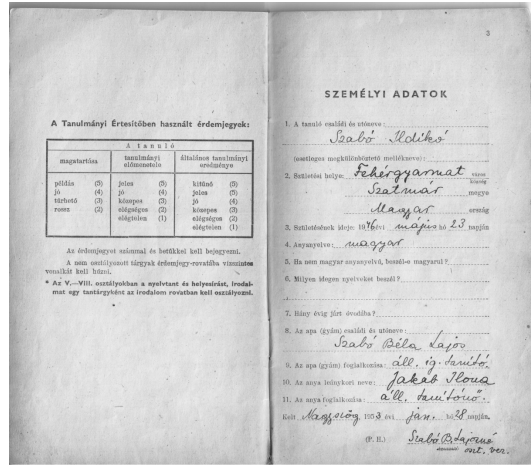 A Tanulmányi Értesítőben használt érdemjegyek:
A tanuló
magatartása
tanulmányi előmenetele
általános tanulmányi eredménye
példás (5) jeles (5) kitűnő (5)
jó (4) jó (4) jeles (5)
tűrhető (3) közepes (3) jó (4)
rossz (2) elégséges (2) közepes (3)
elégtelen (1) elégséges (2)
elégtelen (1)
Az érdemjegyet számmal és betűkkel kell bejegyezni.
A nem osztályozott tárgyak érdemjegy-rovatába vízszintes
vonalkát kell húzni.
* Az V.—VIII. osztályokban a nyelvtant és helyesírást, irodal-
mat egy tantárgyként az irodalom rovatban kell osztályozni.
3
SZEMÉLYI ADATOK
1. A tanuló családi és utóneve:
Szabó Ildikó
(esetleges megkülönböztető mellékneve):
2. Születési helye: Fehérgyarmat város község
Szatmár megye
Magyar ország
3. Születésének ideje: 1946 évi május hó 23 napján
4. Anyanyelve: magyar
5. Ha nem magyar anyanyelvű, beszél-e magyarul?
6. Milyen idegen nyelveket beszél?
7. Hány évig járt óvodába?
8. Az apa (gyám) családi és utóneve:
Szabó Béla Lajos
9. Az apa (gyám) foglalkozása: áll. ig. tanító.
10. Az anya leánykori neve: Jakab Ilona
11. Az anya foglalkozása: áll. tanítónő.
Kelt Nagyszög 1953 évi jan. hó 28 napján.
(P. H.) Szabó B. Lajosné
oszt. vez.